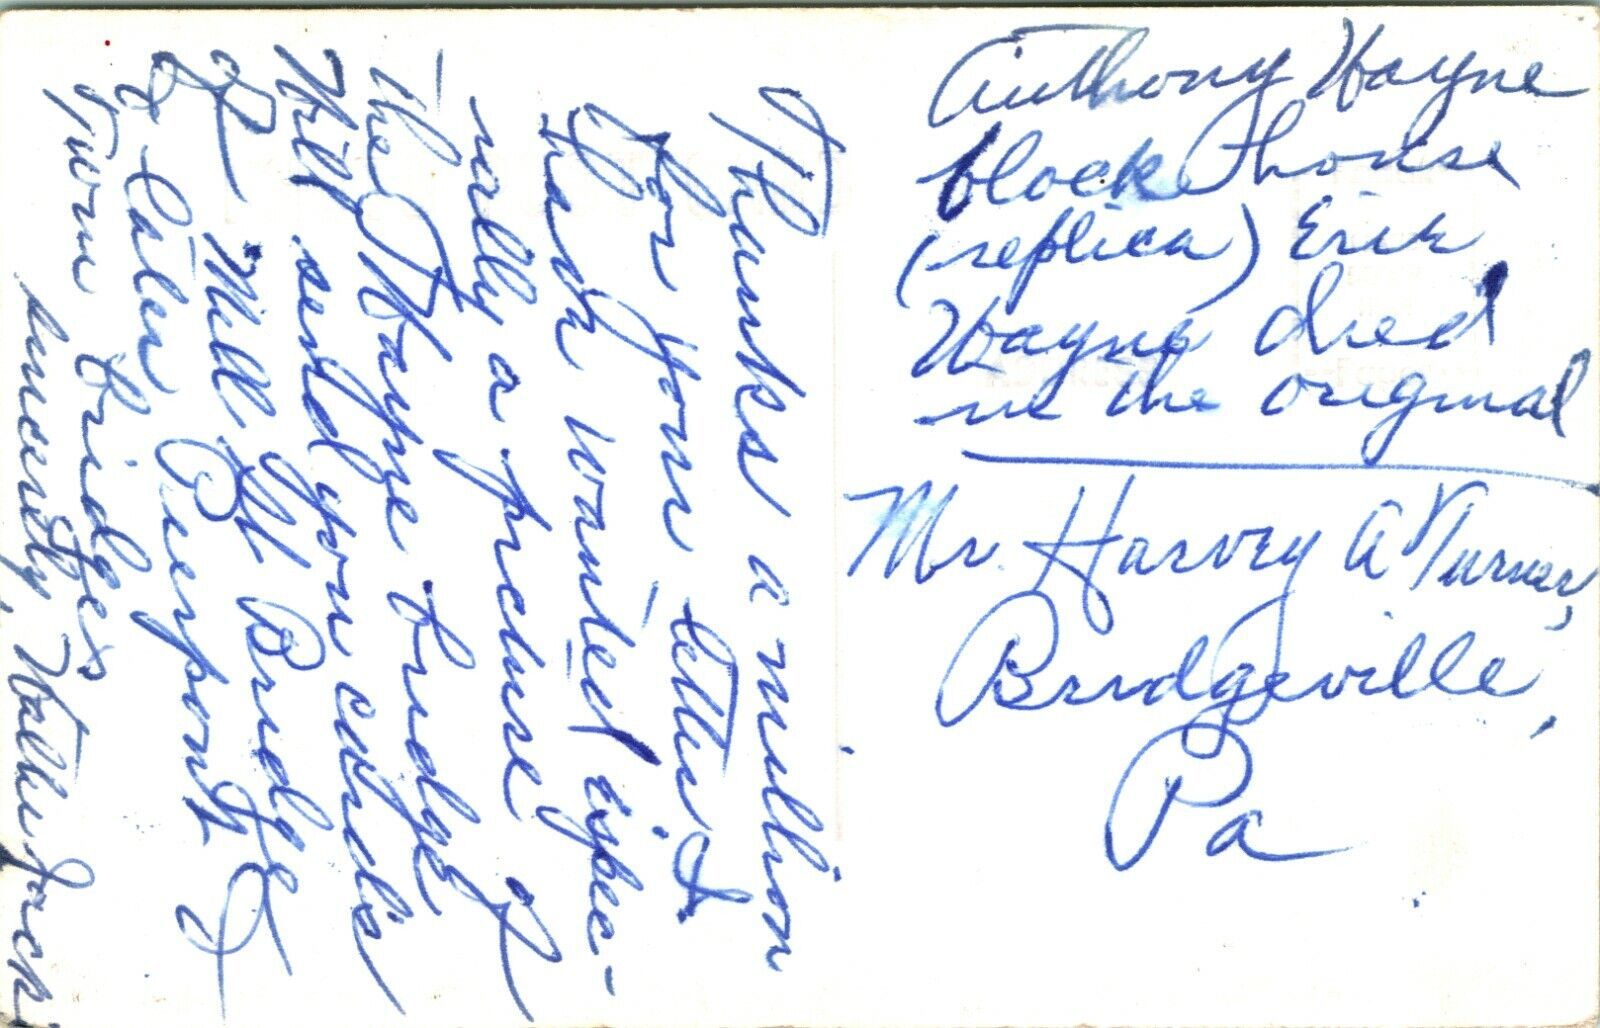 Anthony Wayne
block house
(replica) Erie
Wayne died
in the original
Mr. Harvey A Turner,
Bridgeville,
Pa
Thanks a million
for your letter &
have wanted espec-
ially a picture of
the Wayne bridge
Will send you cards
of Mill Bridge
& Pierpont &
Twin bridges
sincerely,